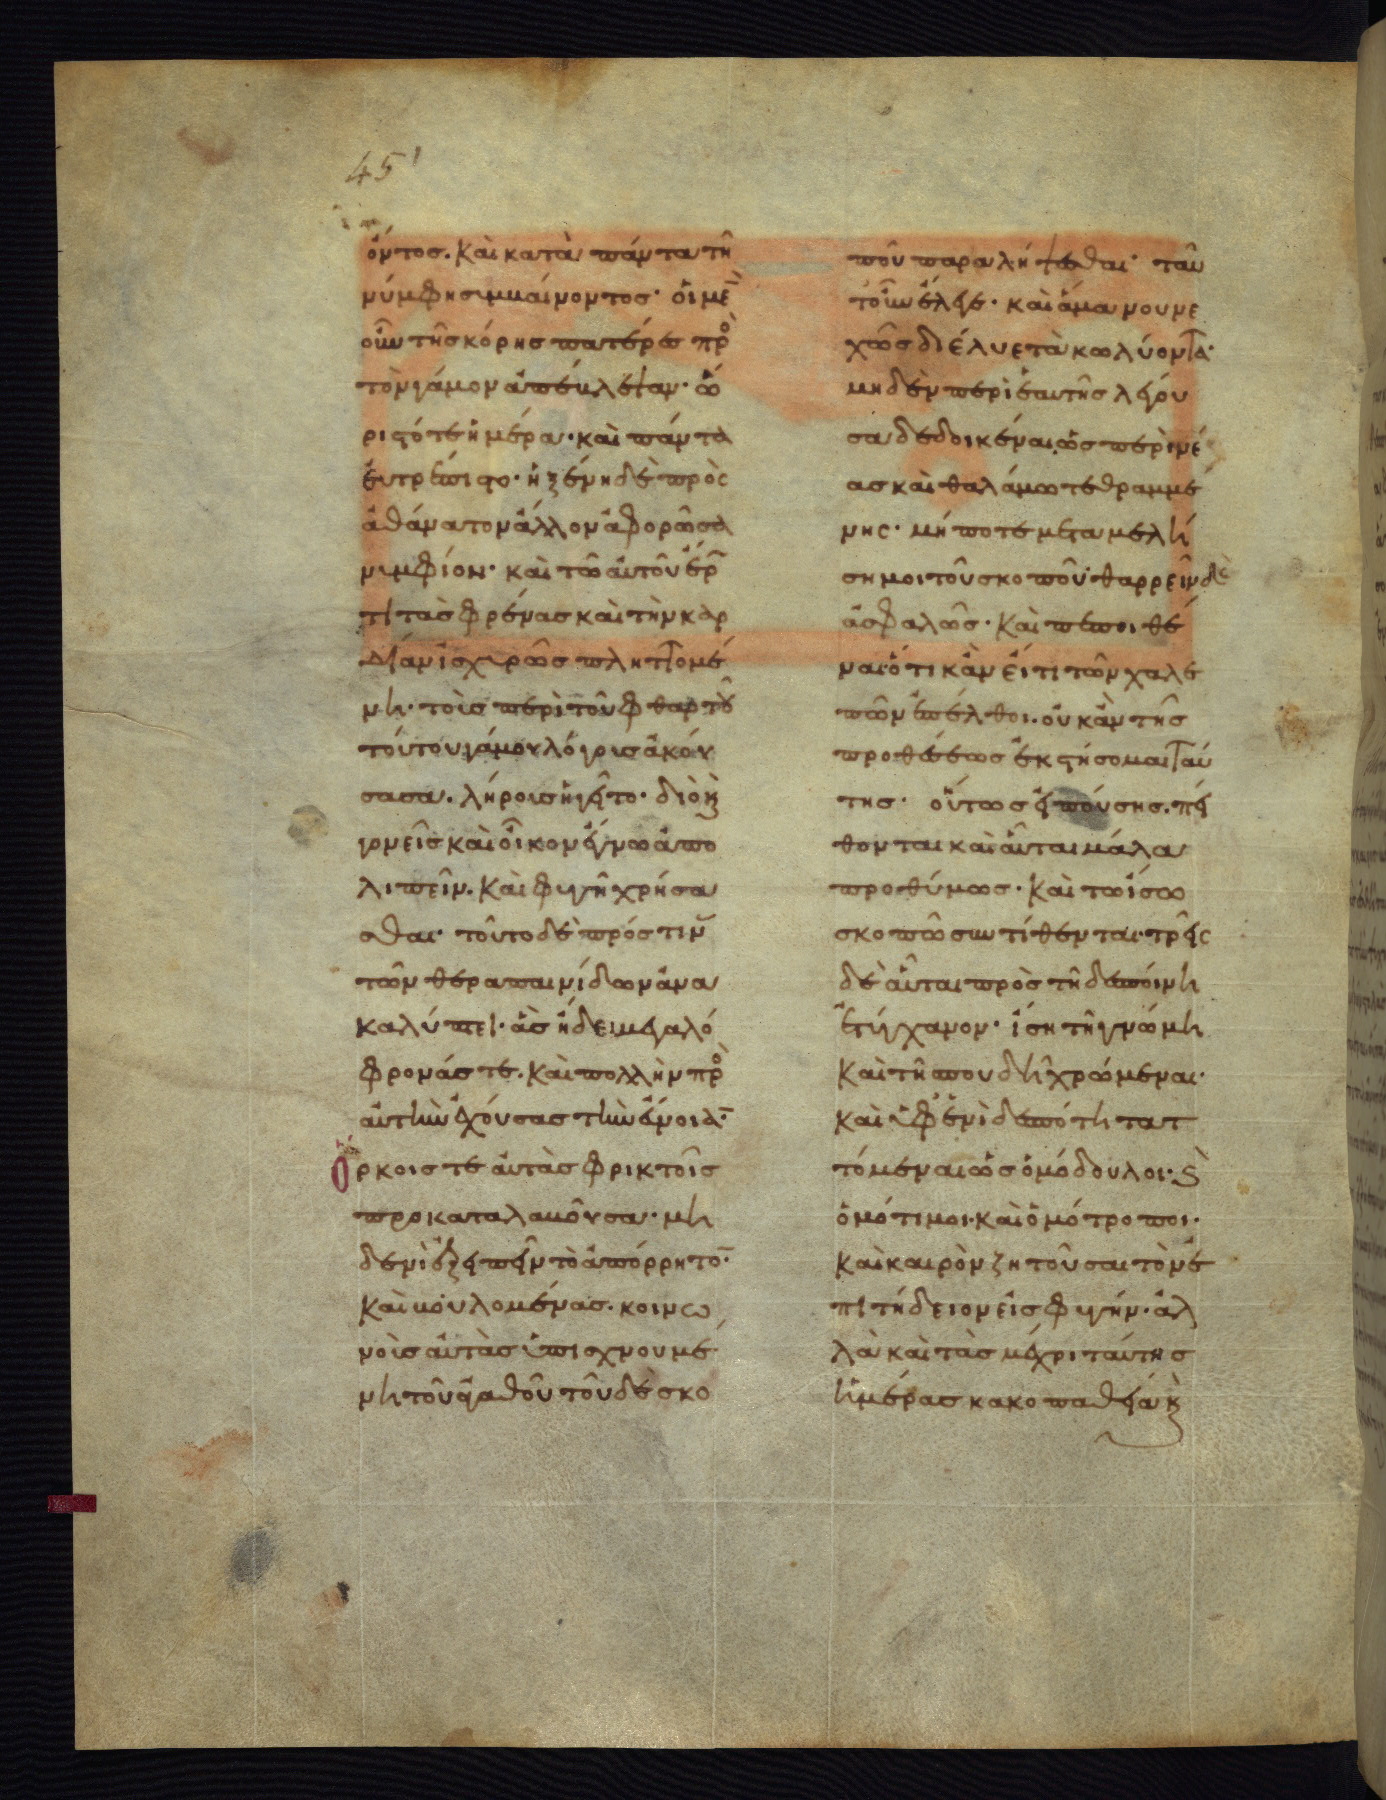 45
όντος. καὶ κατὰ πάντα τῇ
νύμφῃ συμβαίνοντος· οἱ μὲν
οὖν τῆς κόρης πατέρες πρὸς
τὸν γάμον ἀπέκλειαν· ὥ
ριστό τε ἡμέρα· καὶ πάντα
εὐτρέπιστο· ἡ ξένη δὲ πρὸς
ἀθάνατον ἄλλον ἀφορῶσα
νυμφίον· καὶ τῶ αὐτοῦ ἔρω
τι τὰς φρένας καὶ τὴν καρ
δίαν ἰσχυρῶς πληττομέ
νη· τοῖς περὶ τοῦ φθαρτοῦ
τούτου γάμου λόγοις ἀκού
σασα. λήροις ἡγεῖτο· διὸ καὶ
γονεῖς καὶ οἶκον ἔγνω ἀπο
λιπεῖν. καὶ φυγῇ χρήσα
σθαι· τοῦτο δὲ πρός τινας
τῶν θεραπαινίδων ἀνα
καλύπτει· ἃς ᾔδει μεγαλό
φρονάς τε. καὶ πολλὴν πρὸς
αὐτὴν ἐχούσας τὴν εὔνοιαν·
Ὅρκοις τε αὐτὰς φρικτοῖς
προκαταλαβοῦσα· μη
δενὶ ἐξειπεῖν τὸ ἀπόρρητον·
καὶ βουλομένας. κοινω
νοὺς αὐτὰς ὑπισχνουμέ
νη τοῦ ἀγαθοῦ τοῦδε σκο
ποῦ παραλήψεσθαι· ταῦ
τ' οὖν ἔλεγε· καὶ ἅμα νουνε
χῶς διέλυε τὰ κωλύοντα·
μηδὲν περὶ ἑαυτῆς λέγου
σα δεδοικέναι ὡς περὶ νέ
ας καὶ θαλάμω τεθραμμέ
νης· μή ποτε μεταμελή
ση μοι τοῦ σκοποῦ· θαρρεῖν δὲ
ἀσφαλῶς· καὶ πεποιθέ
ναι ὅτι κἂν εἴ τι τῶν χαλε
πῶν ἐπέλθοι. οὐκ ἂν τῆς
προθέσεως ἐκστήσομαι ταύ
της· οὕτως εἰπούσης. πεί
θονται καὶ αὗται μάλα
προθύμως· καὶ τῶ ἴσω
σκοπῶ συντίθενται· τρεῖς
δὲ αὗται πρὸς τῇ δεσποίνη
ἐτύγχανον· ἴση τῇ γνώμη
καὶ τῇ σπουδῇ χρώμεναι·
καὶ ὑφ' ἑνὶ δεσπότη τατ
τόμεναι ὡς ὁμόδουλοι· καὶ
ὁμότιμοι· καὶ ὁμότροποι·
καὶ καιρὸν ζητοῦσαι τὸν ἐ
πιτήδειον εἰς φυγήν· ἀλ
λὰ καὶ τὰς μέχρι ταύτης
ἡμέρας κακοπαθεία καὶ